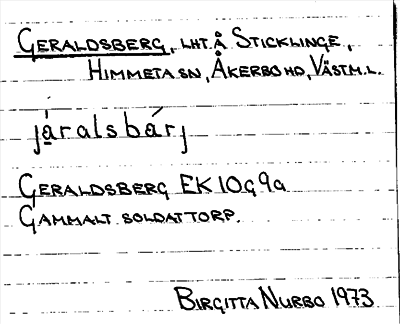 GERALDSBERG, LHT. Å STICKLINGE,
HIMMETA SN, ÅKERBO HD, VÄSTM.L.
járalsbárj
GERALDSBERG EK 10G9a
GAMMALT SOLDATTORP.
BIRGITTA NURBO 1973